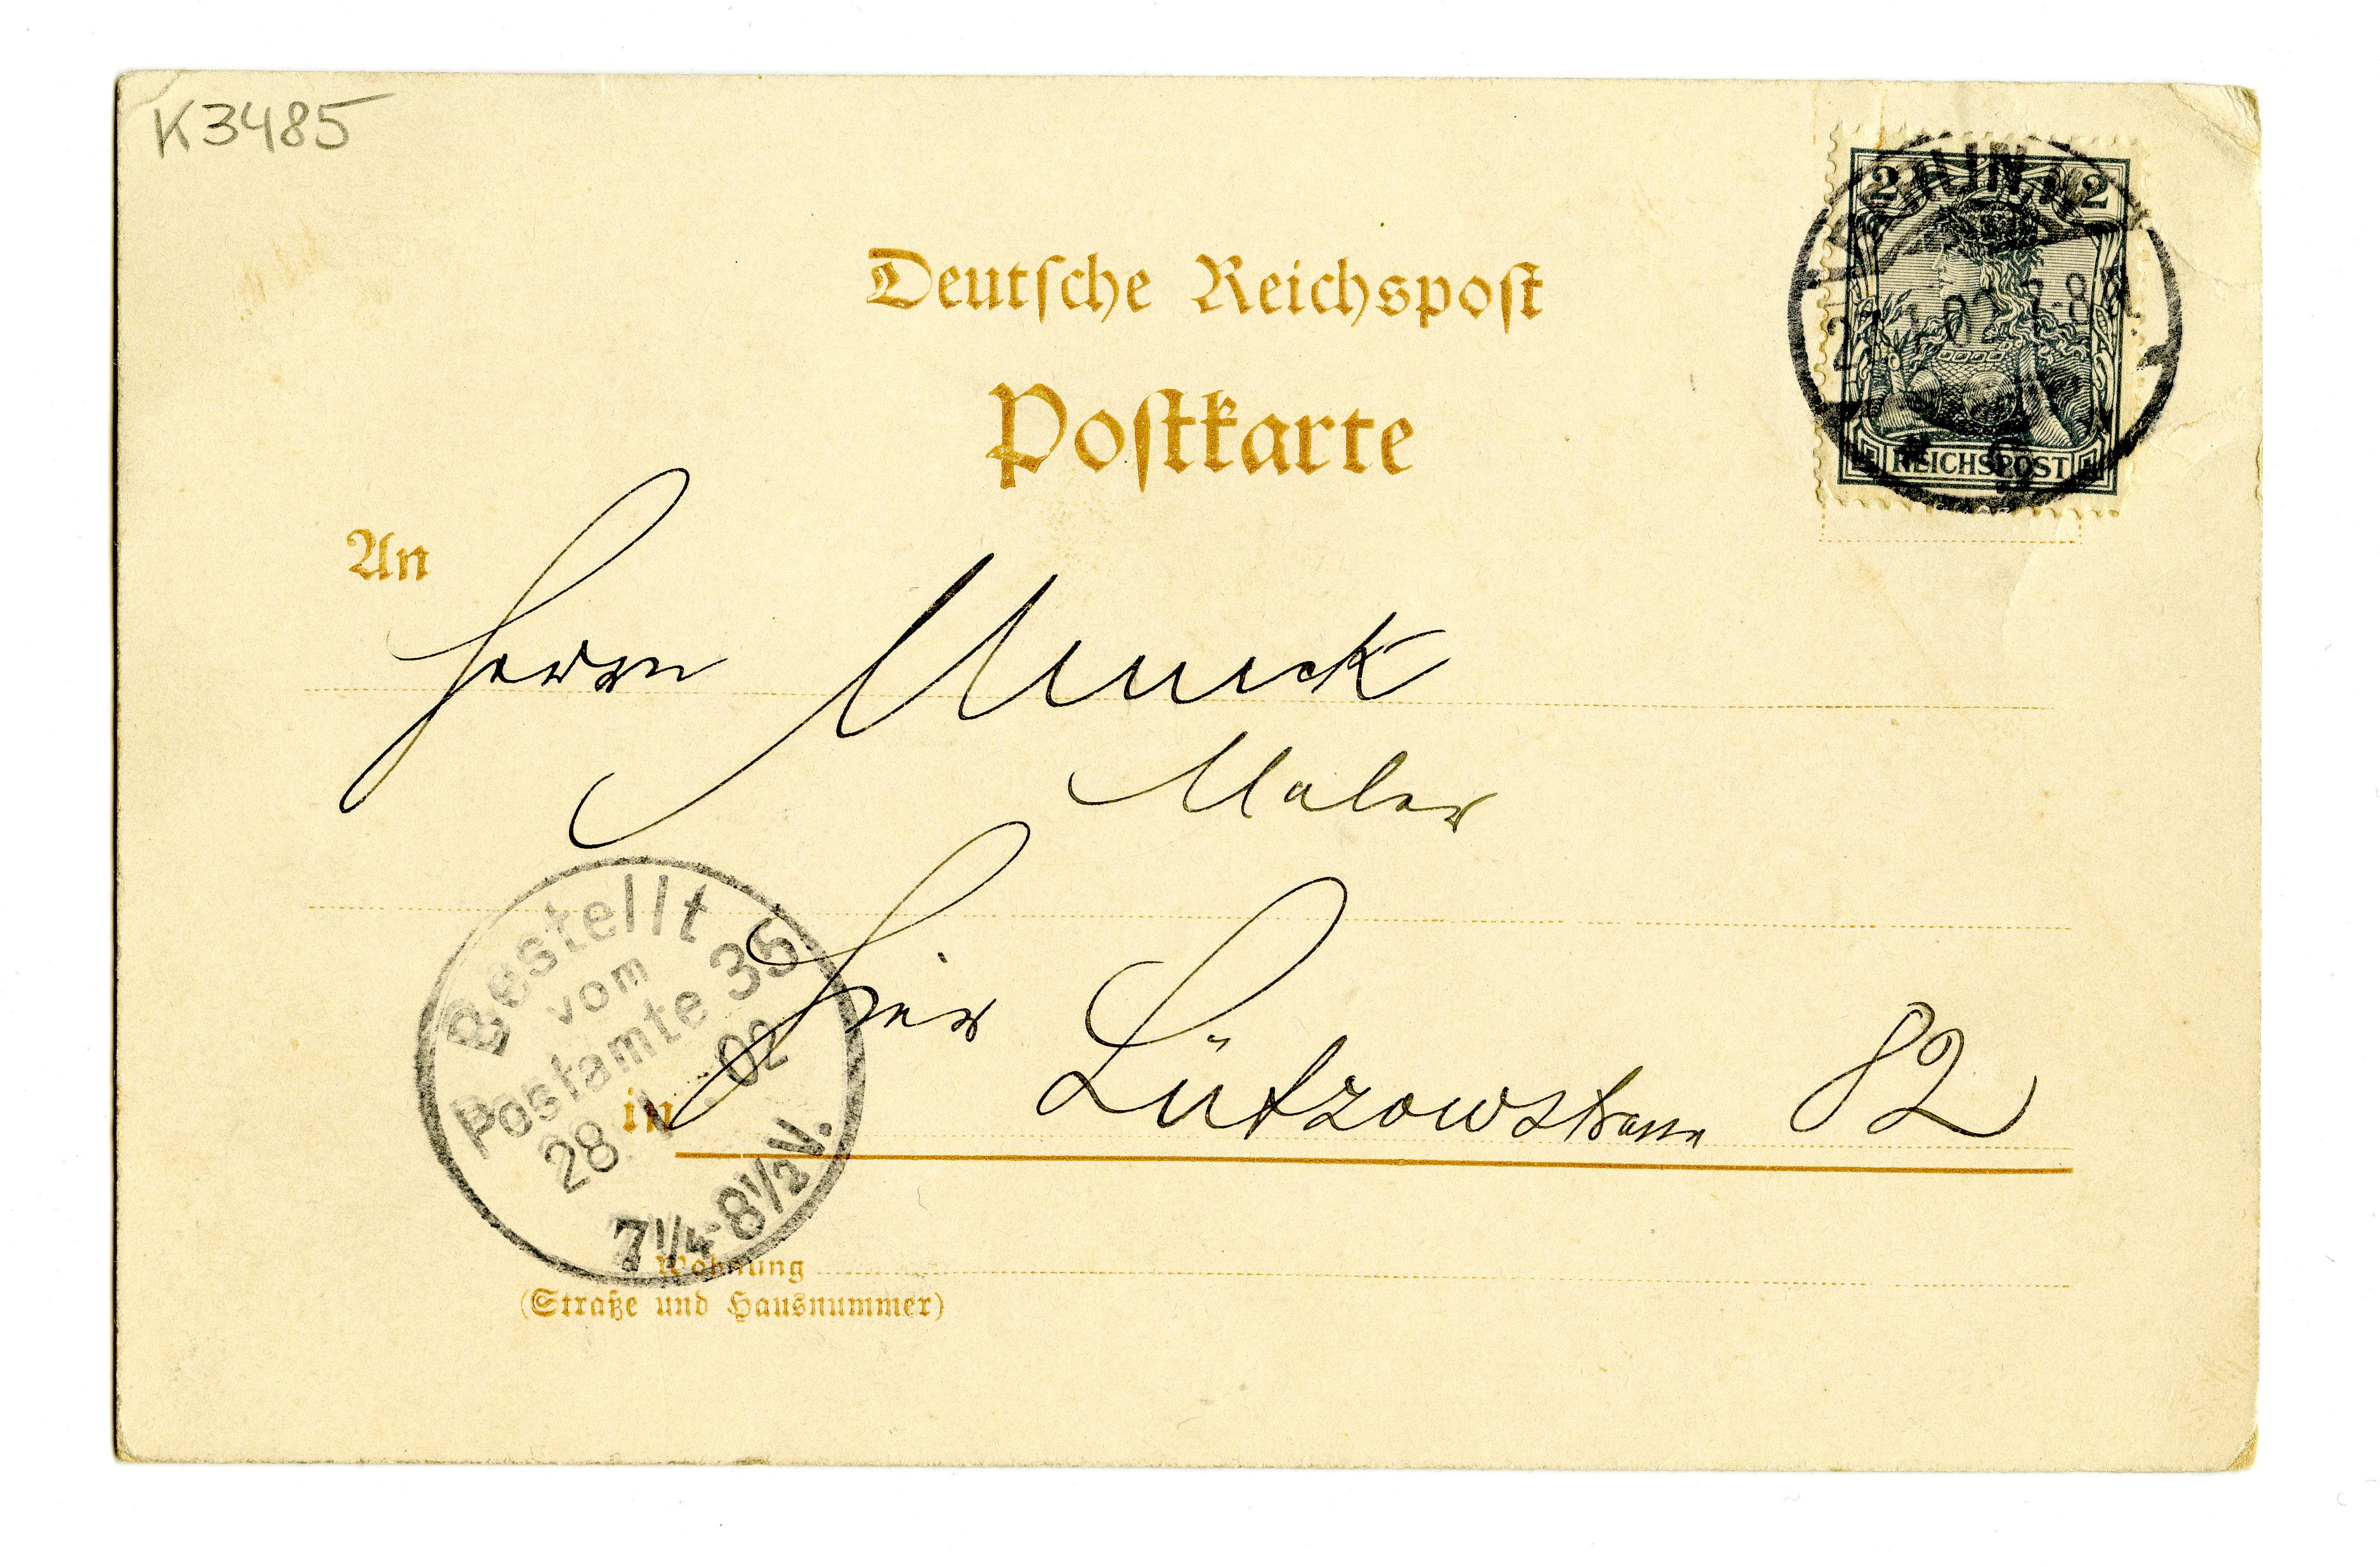 K3485
Deutsche Reichspost
Postkarte
2 2
REICHSPOST
An
Herrn Munck
Maler
Hier
Lützowstrasse 82
in
Bestellt
vom
Postamte 35
28. 1. 02
7 1/4-8 1/2 V.
Wohnung
(Straße und Hausnummer)